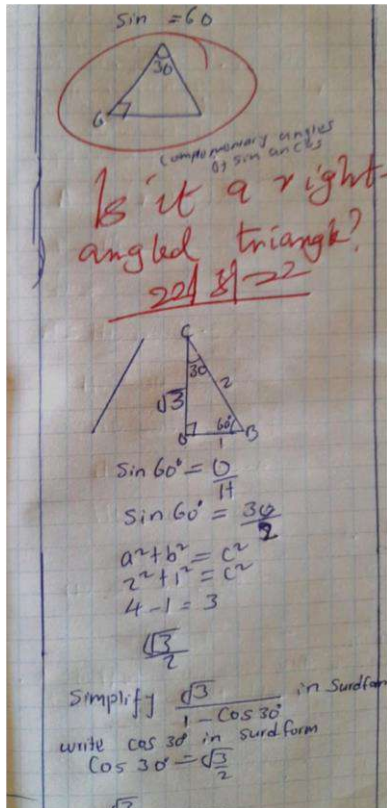 sin = 60
30
complementary angles
of sin an cos
Is it a right-
angled triangle?
22/3/-22
C
30
√3
2
60°
B
1
sin 60° = O/H
sin 60° =
a²+b² = c²
2²+1² = c²
4-1 = 3
√3/2
Simplify √3/1-cos30° in surdform
write cos 30° in surdform
cos 30° = √3/2